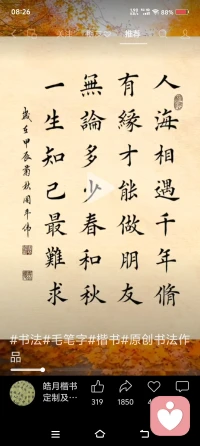 08:26
88%
推荐
人海相遇千年脩
有緣才能做朋友
無論多少春和秋
一生知己最難求
歲在甲辰肅秋周年偉
#书法#毛笔字#楷书#原创书法作
品
皓月楷书
定制及…
319
1850